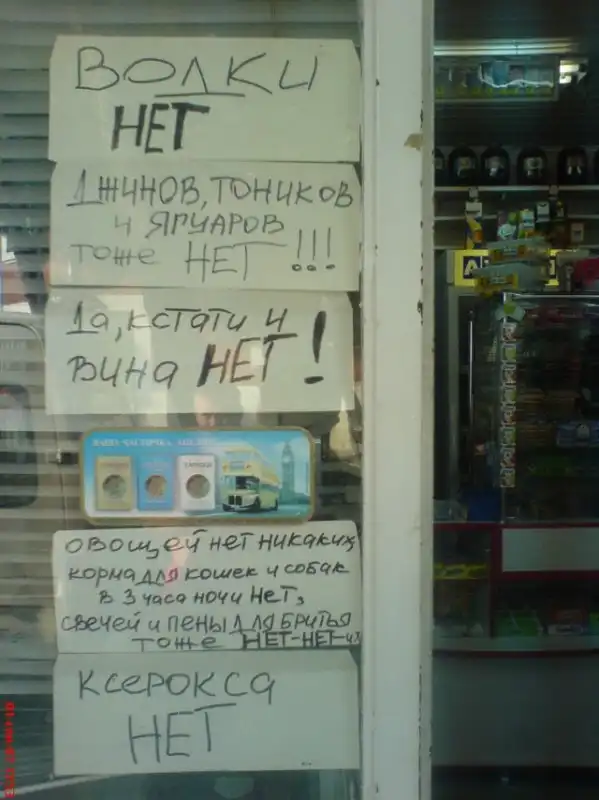 ВОЛКИ
НЕТ
ДЖИНОВ, ТОНИКОВ
И ЯГУАРОВ
тоже НЕТ!!!
Да, кстати и
вина НЕТ!
ОВОЩЕЙ НЕТ НИКАКИХ
корма для кошек и собак
в 3 часа ночи Нет,
свечей и пены для бритья
тоже НЕТ-НЕТ-и
Ксерокса
НЕТ